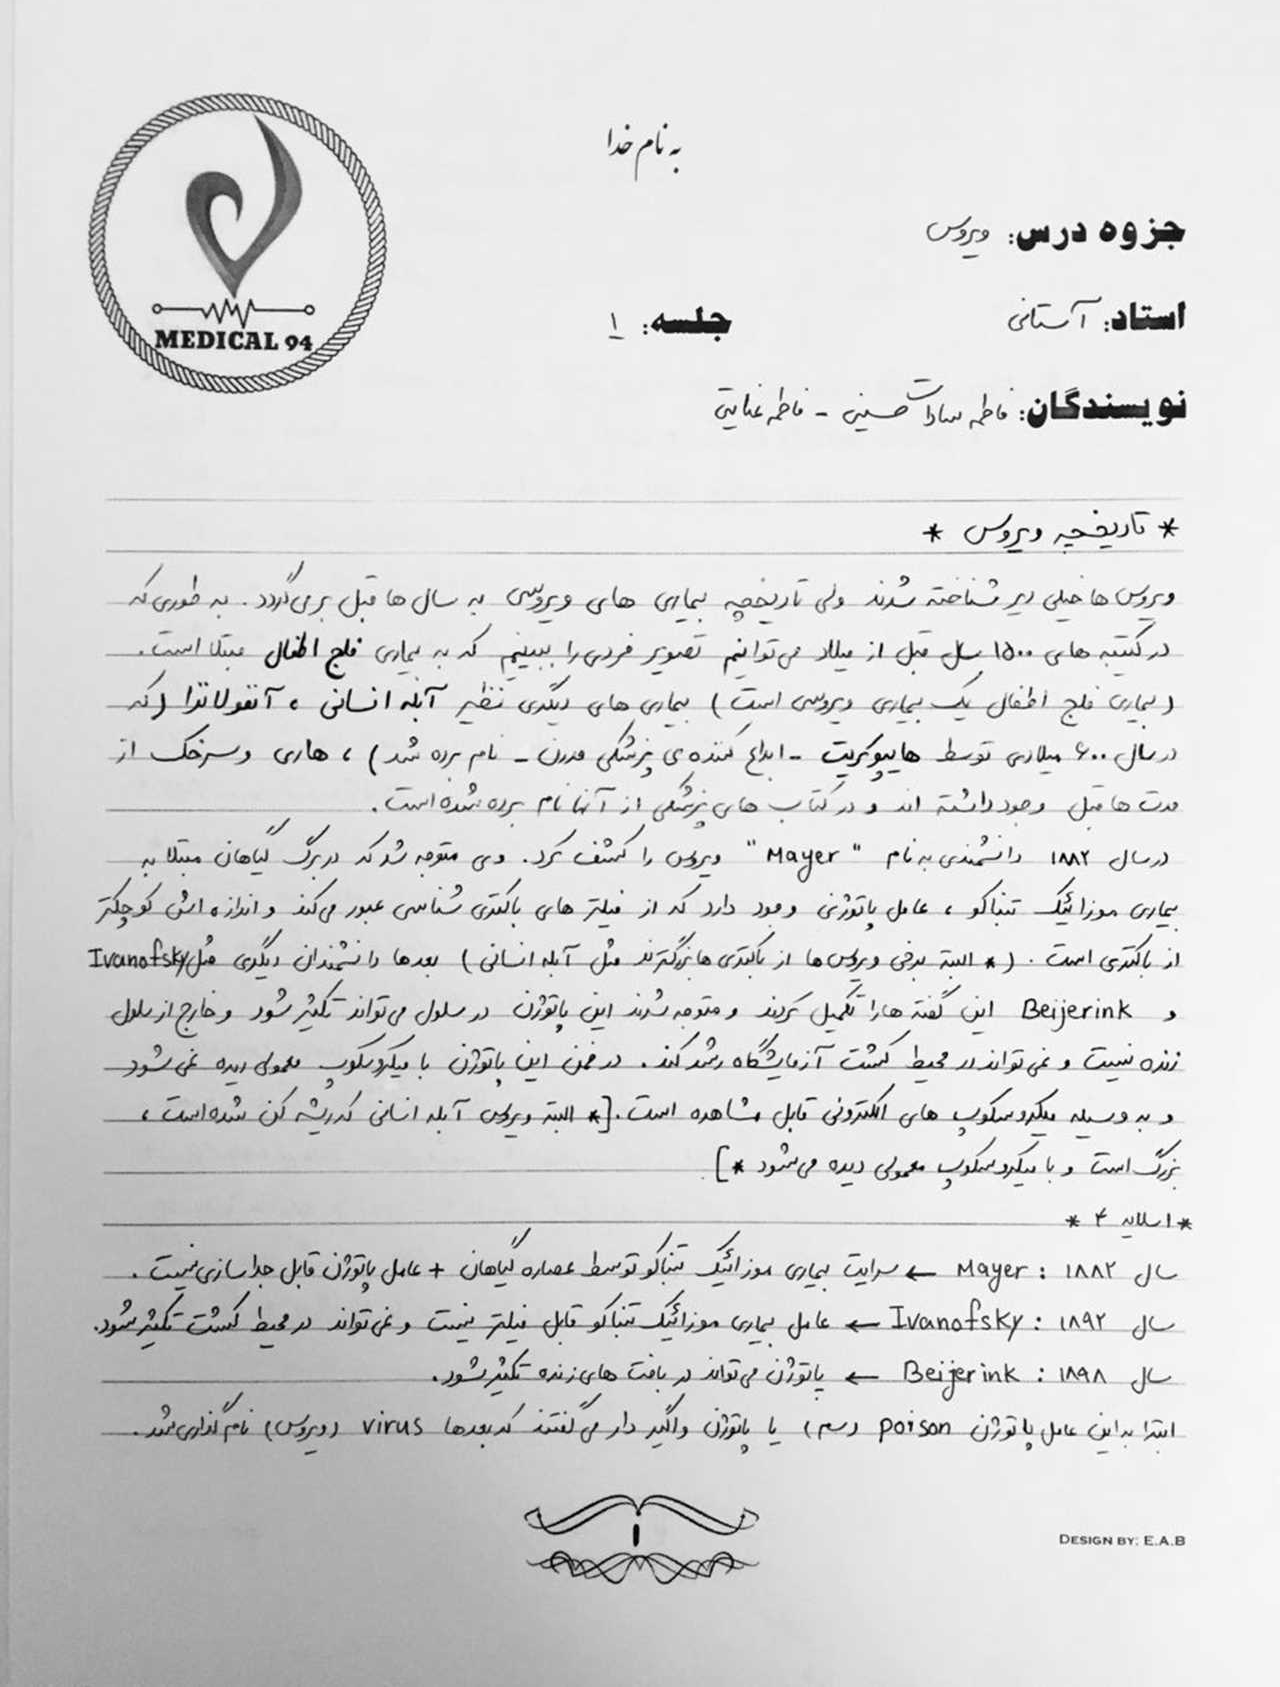 به نام خدا
جزوه درس: ویروس
استاد: آستانی
جلسه: ۱
MEDICAL 94
نویسندگان: فاطمه سادات حسینی - فاطمه عنایتی
* تاریخچه ویروس *
ویروس ها خیلی دیر شناخته شدند ولی تاریخچه بیماری های ویروسی به سال ها قبل بر می گردد. به طوری که
در کتیبه های ۱۵۰۰ سال قبل از میلاد می توانیم تصویر فردی را ببینیم که به بیماری فلج اطفال مبتلا است.
(بیماری فلج اطفال یک بیماری ویروسی است) بیماری های دیگری نظیر آبله انسانی، آنفولانزا (که
در سال ۶۰۰ میلادی توسط هایپوکریت - ابداع کننده ی پزشکی مدرن - نام برده شد)، هاری و سرخک از
مدت ها قبل وجود داشته اند و در کتاب های پزشکی از آنها نام برده شده است.
در سال ۱۸۸۲ دانشمندی به نام "Mayer" ویروس را کشف کرد. وی متوجه شد که در برگ گیاهان مبتلا به
بیماری موزائیک تنباکو، عامل پاتوژنی وجود دارد که از فیلتر های باکتری شناسی عبور می کند و اندازه اش کوچکتر
از باکتری است. (* البته برخی ویروس ها از باکتری ها بزرگترند مثل آبله انسانی) بعدها دانشمندان دیگری مثل Ivanofsky
و Beijerink این گفته ها را تکمیل کردند و متوجه شدند این پاتوژن در سلول می تواند تکثیر شود و خارج از سلول
زنده نیست و نمی تواند در محیط کشت آزمایشگاه رشد کند. در ضمن این پاتوژن با میکروسکوپ معمولی دیده نمی شود
و به وسیله میکروسکوپ های الکترونی قابل مشاهده است. [* البته ویروس آبله انسانی که ریشه کن شده است،
بزرگ است و با میکروسکوپ معمولی دیده می شود *]
* اسلاید ۴ *
سال ۱۸۸۲ : Mayer ← سرایت بیماری موزائیک تنباکو توسط عصاره گیاهان + عامل پاتوژن قابل جداسازی نیست.
سال ۱۸۹۲ : Ivanofsky ← عامل بیماری موزائیک تنباکو قابل فیلتر نیست و نمی تواند در محیط کشت تکثیر شود.
سال ۱۸۹۸ : Beijerink ← پاتوژن می تواند در بافت های زنده تکثیر شود.
ابتدا به این عامل پاتوژن poison (سم) یا پاتوژن واگیر دار می گفتند که بعدها virus (ویروس) نام گذاری شد.
۱
DESIGN BY: E.A.B